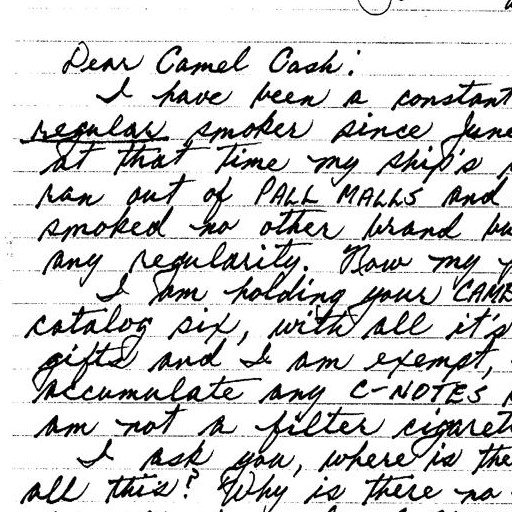 Dear Camel Cash:
I have been a constant
regular smoker since June
At that time my ship's
ran out of PALL MALLS and
smoked no other brand
any regularity. Now my
I am holding your
catalog six, with all it's
gifts and I am exempt,
accumulate any C-NOTES
am not a filter
I ask you, where is the
all this? Why is there no